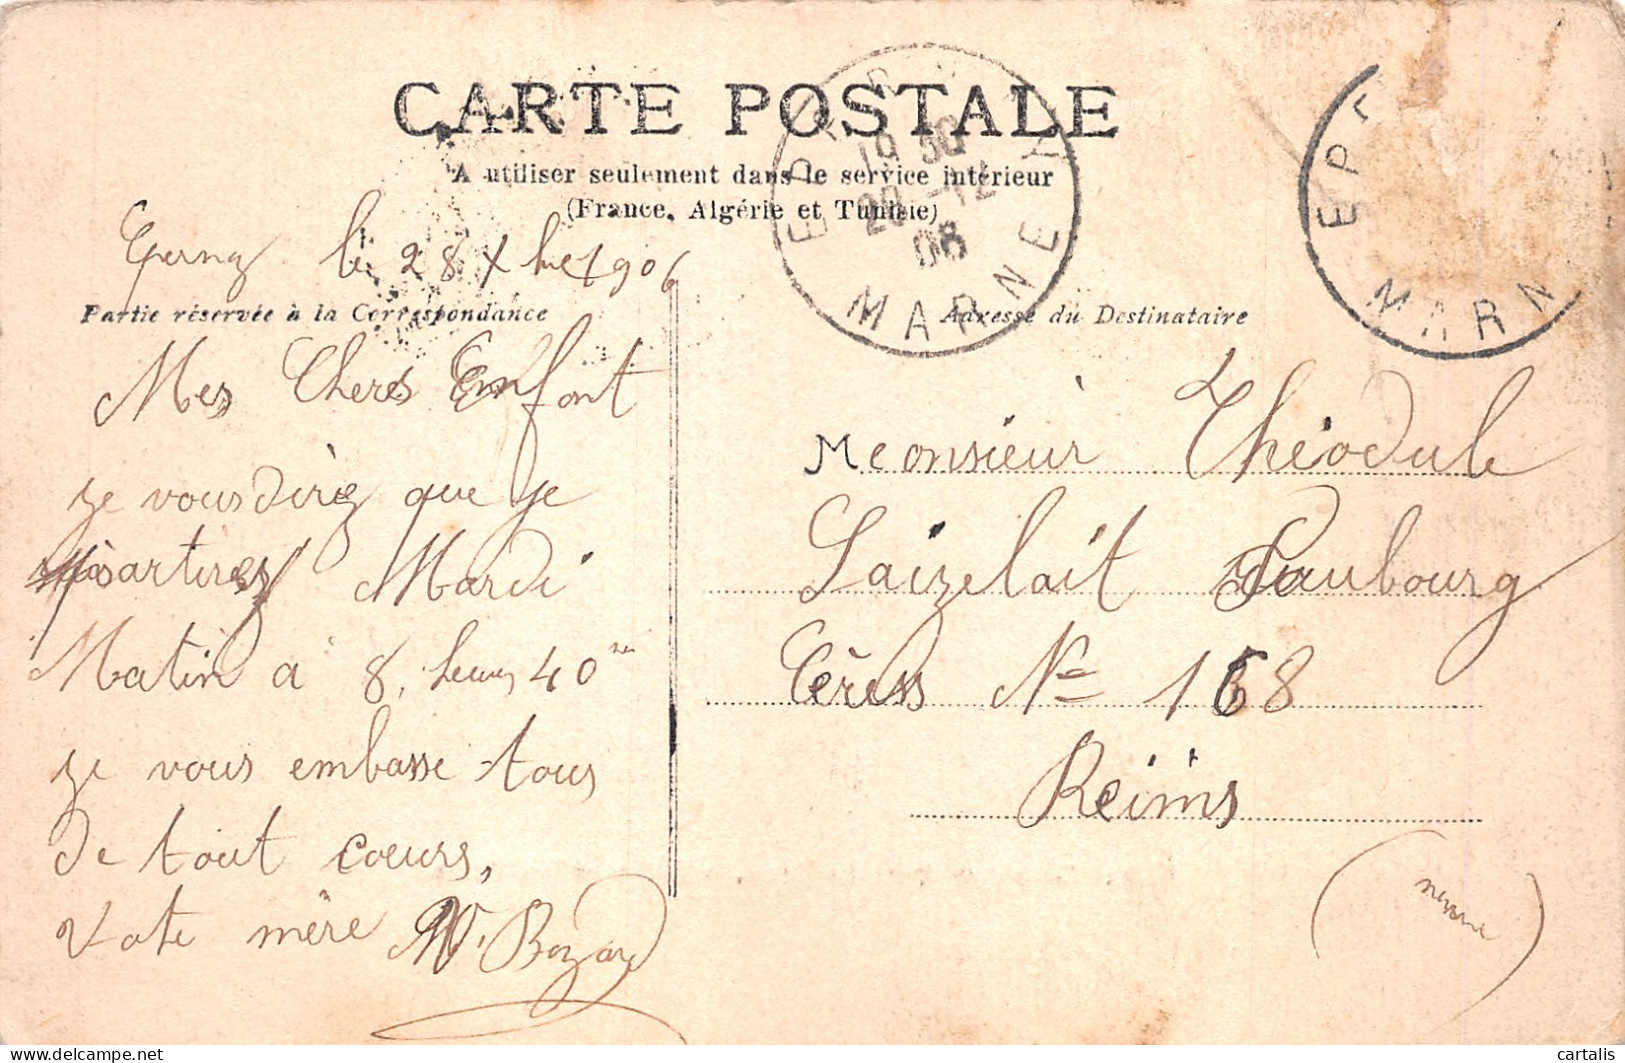 CARTE POSTALE
A utiliser seulement dans le service intérieur
(France, Algérie et Tunisie)
Epernay le 28 Xbre 1906
Partie réservée à la Correspondance
Mes Cheres Enfant
je vous dirèz que je
partirez Mardi
Matin a 8, heures 40
je vous embasse tous
De tout coeurs,
Vote mère M. Bozard
EPERNAY
19 30
28 -12
06
MARNE
EPE
MARN
Adresse du Destinataire
Meonsieur Théodule
Laizelait Faubourg
Cèress No 168
Reims
(Marne)
delcampe.net
cartalis